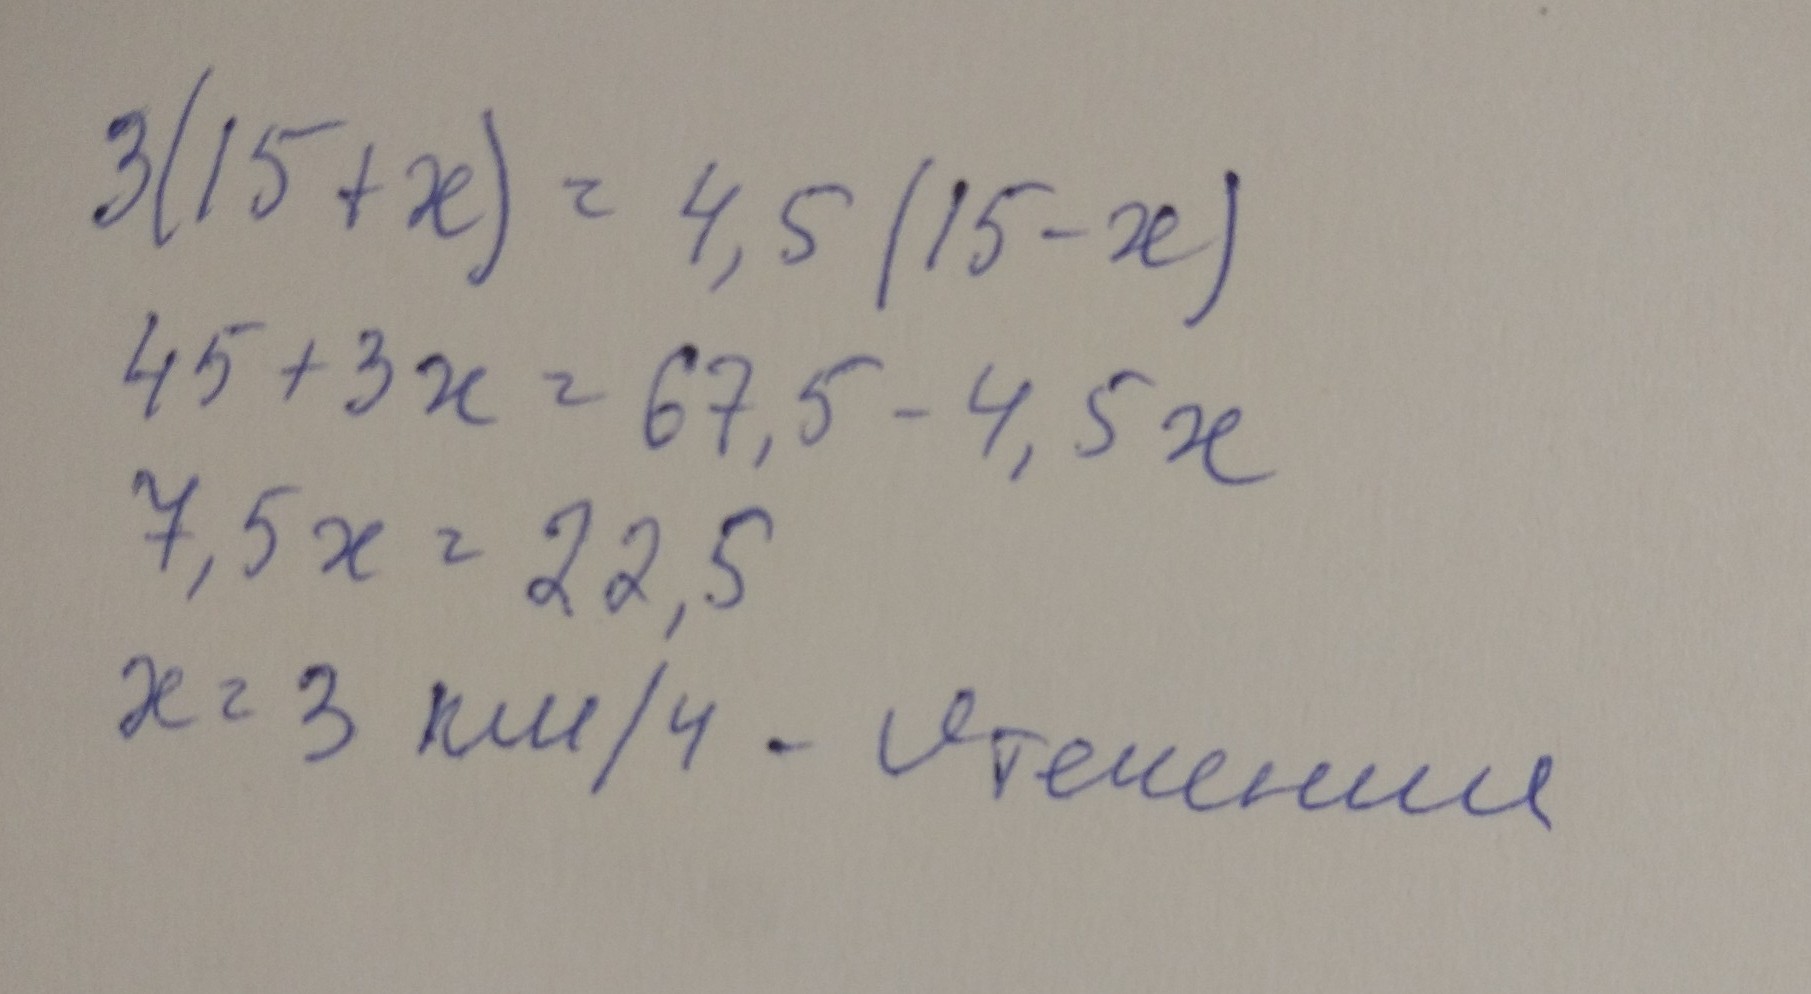 3(15+x) = 4,5(15-x)
45+3x = 67,5-4,5x
7,5x = 22,5
x = 3 км/ч - v течения